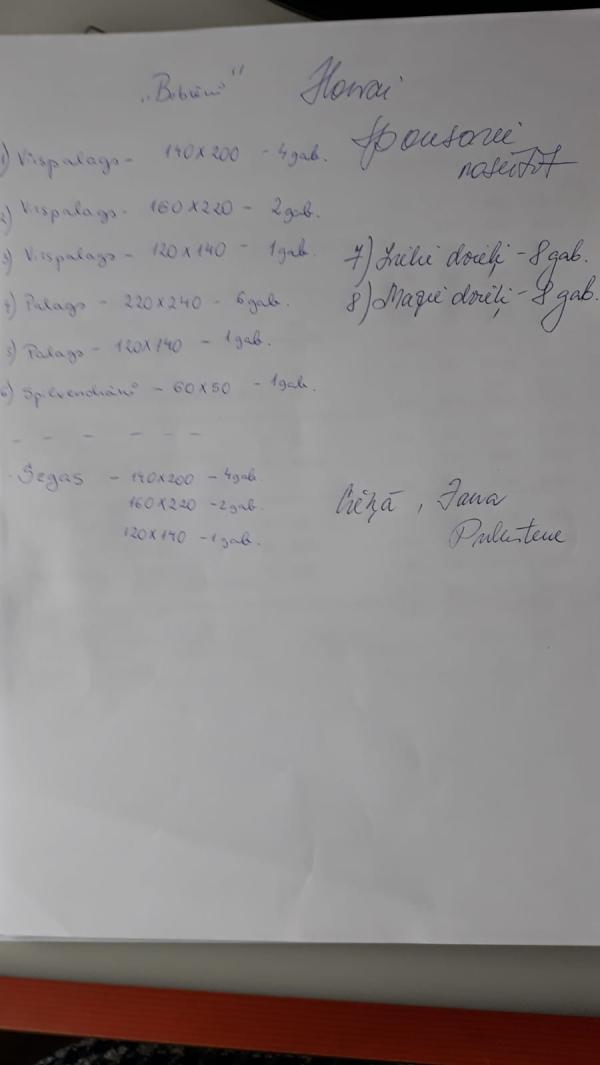 "Bebrēni"
1) Virspalags - 140x200 - 4gab.
2) Virspalags - 160x220 - 2gab.
3) Virspalags - 120x140 - 1gab.
4) Palags - 220x240 - 6gab.
5) Palags - 120x140 - 1gab.
6) Spilvendrāna - 60x50 - 1gab.
- - - - - -
Segas - 140x200 - 4gab.
160x220 - 2gab.
120x140 - 1gab.
Sponsorē
7) Lielie dvieļi - 8 gab.
8) Mazie dvieļi - 8 gab.
, Jana